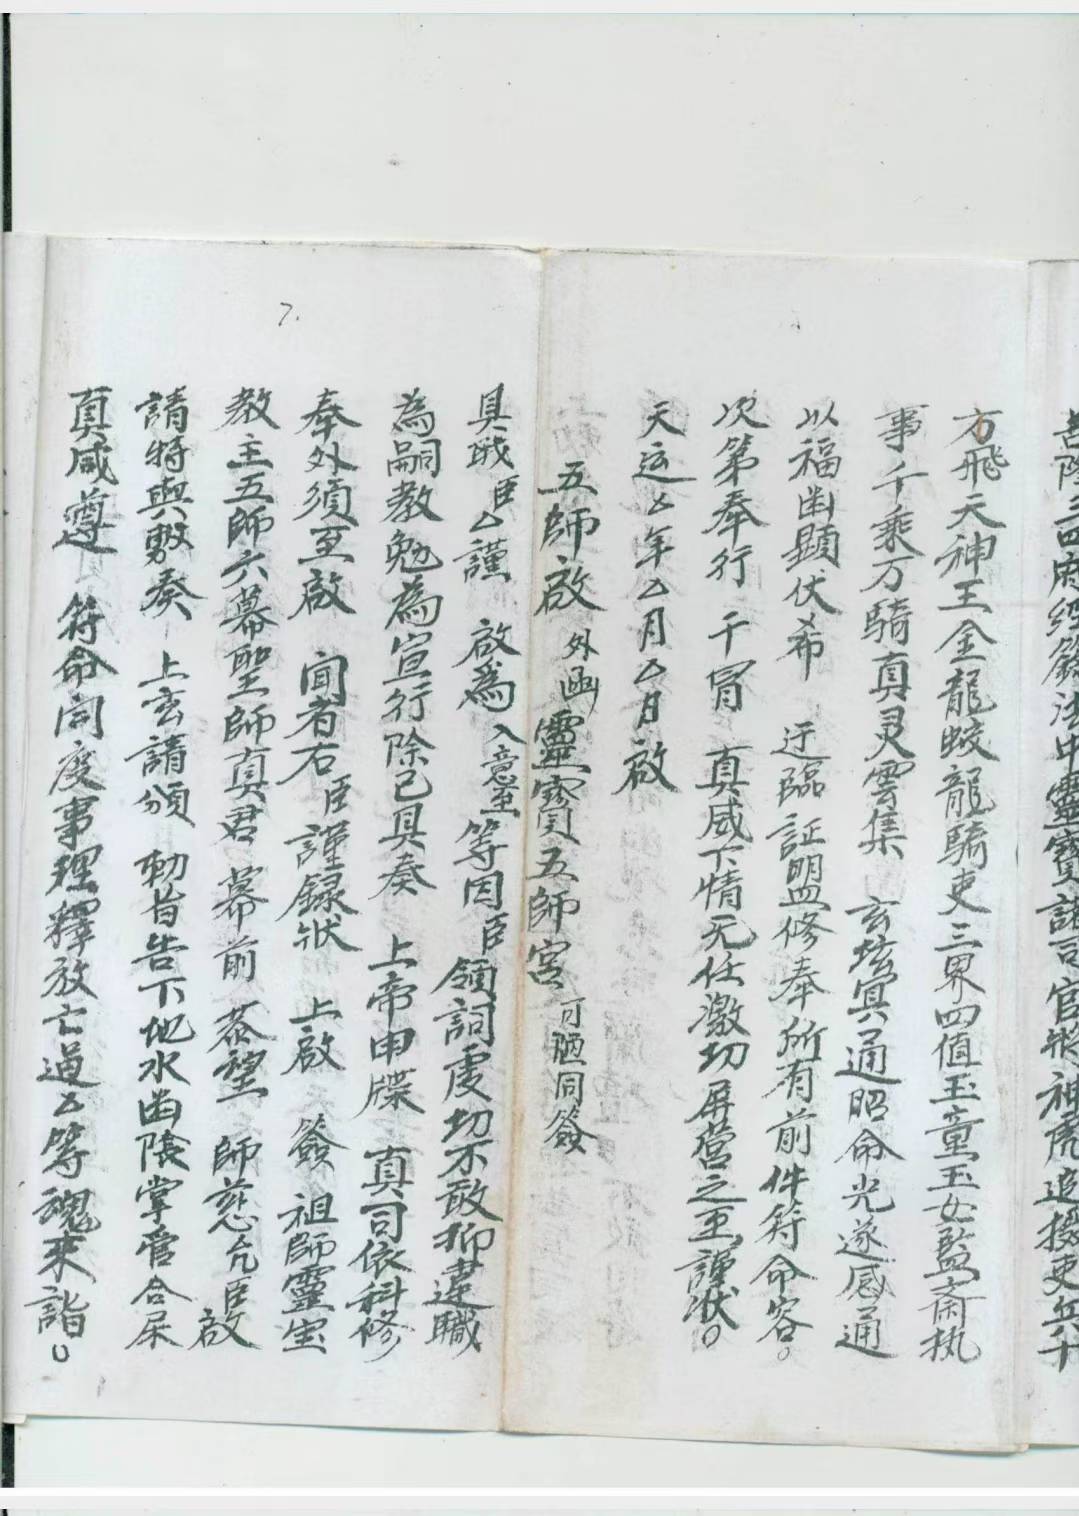 善陞三四府經籙法中靈寶諸司官將神虎追攝吏兵十
方飛天神王金龍蛟龍騎吏三界四值玉童玉女監斋执
事千乘万騎真灵雲集 玄垓冥通昭命光遂感通
以福幽顕伏希 迂臨証盟修奉所有前件符命容。
次第奉行 干冐 真威下情无任激切屏营之至謹状。
天运厶年厶月厶日啟
五師啟 外凾靈寳五師宮 可陋同簽
具職臣厶謹 啟爲入意至等因臣領詞虔切不敢抑違職
為嗣教勉為宣行除已具奏 上帝申牒 真司依科修
奉外須至啟 聞者右臣謹録状 上啟 簽 祖師靈宝
教主五師六幕聖師真君 幕前 恭望 師慈允臣啟
請特與敷奏 上玄請頒 勅旨告下地水幽陰掌管合屎
真咸遵 符命同度事理釋放亡過厶等魂来詣。
7.